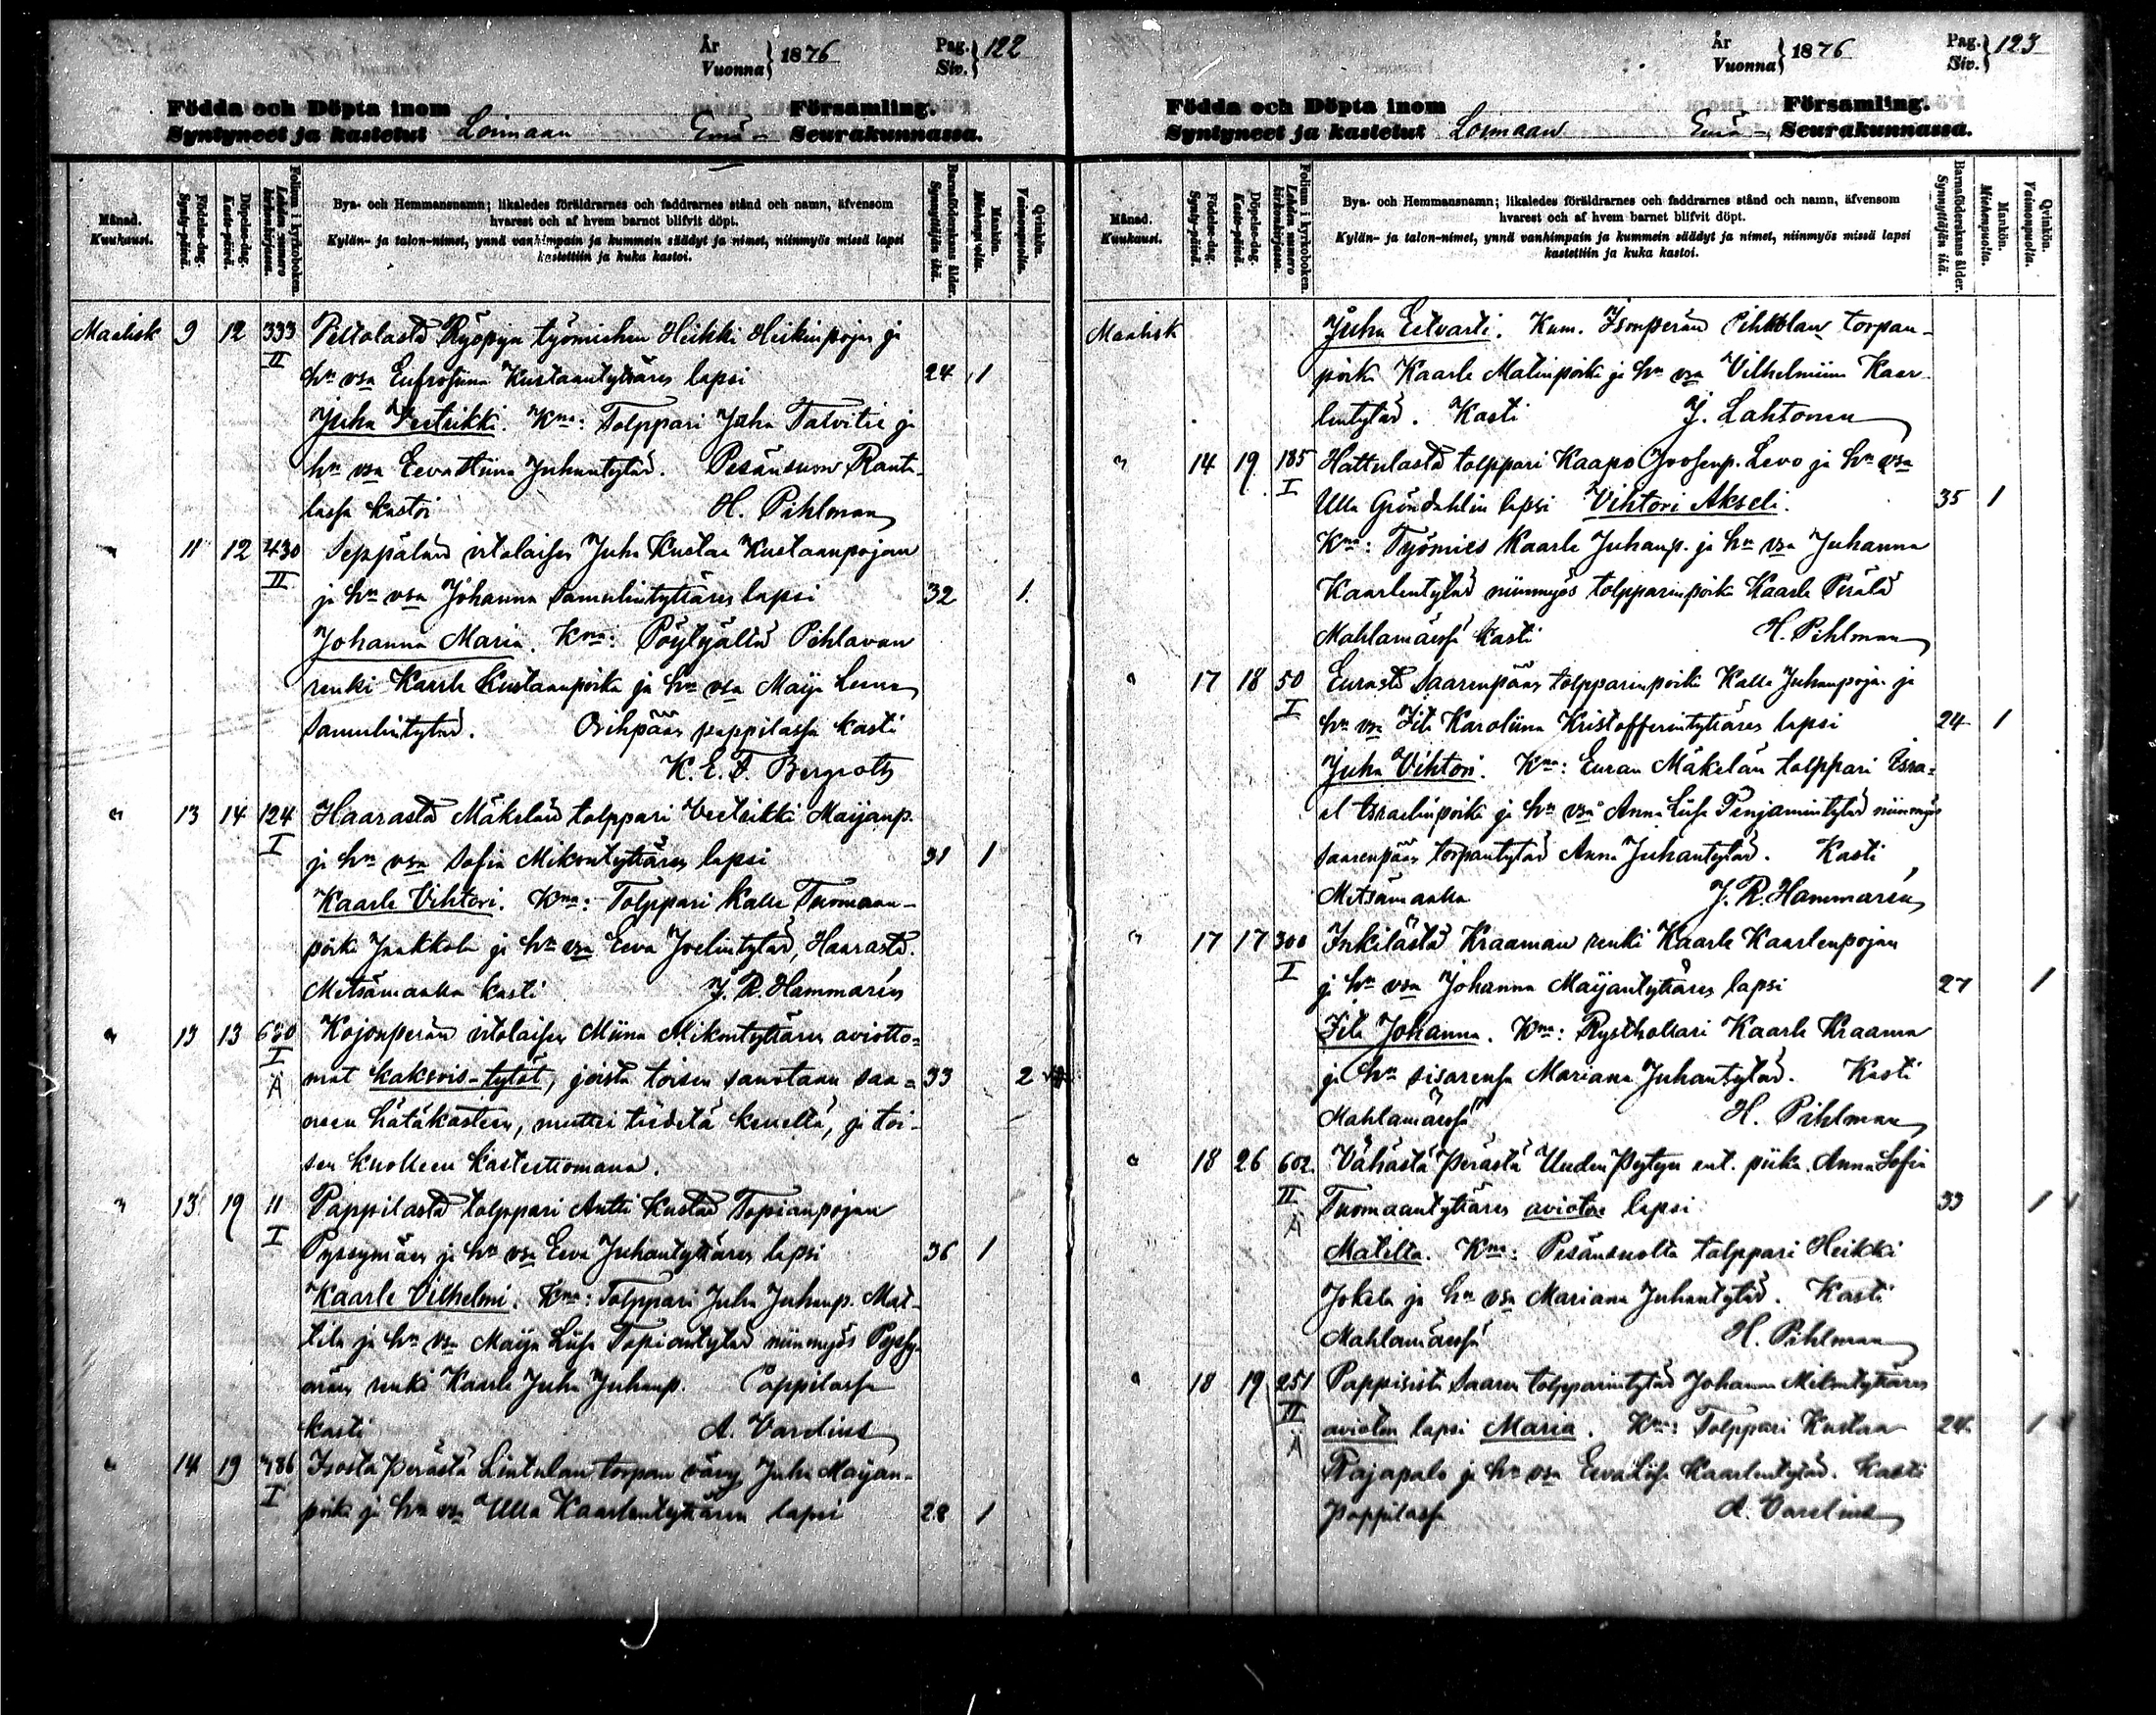 År
Vuonna } 1876
Pag.
Siv. } 122
Födda och Döpta inom Församling.
Syntyneet ja kastetut Loimaan Emä- Seurakunnassa.
Månad.
Kuukausi.
Födelse-dag.
Synty-päivä.
Döpelse-dag.
Kaste-päivä.
Folium i kyrkoboken.
Lehden numero kirkonkirjassa.
Bya- och Hemmansnamn; likaledes föräldrarnes och faddrarnes stånd och namn, äfvensom
hvarest och af hvem barnet blifvit döpt.
Kylän- ja talon-nimet, ynnä vanhimpain ja kummein säädyt ja nimet, niinmyös missä lapsi
kastettiin ja kuka kastoi.
Barnaföderskans ålder.
Synnyttäjän ikä.
Mankön.
Miehenpuolta.
Qvinkön.
Vaimonpuolta.
Maalisk 9 12 333 Peltolasta Ryöpyn työmiehen Heikki Heikinpojan ja
II hn vsa Eufrosiina Kustaantyttären lapsi 24 1
Juha Vretrikki. Kna: Tolppari Juha Talvitie ja
hn vsa Eevastiina Juhantytär. Pesänsuon Ranta-
lassa kastoi H. Pihlman
" 11 12 430 Seppälän itolaisen Juha Kustaa Kustaanpojan
II ja hn vsa Johanna Samulintyttären lapsi 32 1.
Johanna Maria. Kna: Pöytyältä Pihlavan
renki Kaarle Kustaanpoika ja hn vsa Maija Leena
Samulintytär. Orihpään pappilassa kasti
K. E. F. Bergroth
" 13 14 124 Haarasta Mäkelän tolppari Vretrikki Maijanp.
I ja hn vsa Sofia Mikontyttären lapsi 31 1
Kaarle Vihtori. Kna: Tolppari Kalle Tuomaan-
poika Jaakkola ja hn vsa Eeva Joelintytär, Haarasta.
Metsämaalla kasti J. R. Hammarén
" 13 13 680 Kojonperän itolaisen Miina Mikontyttären aviotto-
I mat kaksois-tytöt, joista toisen sanotaan saa- 33 2
Ä neen hätäkasteen, mutt'ei tiedetä keneltä, ja toi-
sen kuolleen kastettomana.
" 13 19 11 Pappilasta tolppari Antti Kustaa Topianpojan
I Pyssymäen ja hn vsa Eeva Juhantyttären lapsi 36 1
Kaarle Vilhelmi. Kna: Tolppari Juha Juhanp. Mat-
tila ja hn vsa Maija Liisa Topiantytär niinmyös Pyssy-
mäen renki Kaarle Juha Juhanp. Pappilassa
kasti A. Varelius
" 14 19 786 Isosta Perästä Lintulan torpan vävy Juha Maijan-
I poika ja hn vsa Ulla Kaarlentyttären lapsi 28 1
År
Vuonna } 1876
Pag.
Siv. } 123
Födda och Döpta inom Församling.
Syntyneet ja kastetut Loimaan Emä- Seurakunnassa.
Månad.
Kuukausi.
Födelse-dag.
Synty-päivä.
Döpelse-dag.
Kaste-päivä.
Folium i kyrkoboken.
Lehden numero kirkonkirjassa.
Bya- och Hemmansnamn; likaledes föräldrarnes och faddrarnes stånd och namn, äfvensom
hvarest och af hvem barnet blifvit döpt.
Kylän- ja talon-nimet, ynnä vanhimpain ja kummein säädyt ja nimet, niinmyös missä lapsi
kastettiin ja kuka kastoi.
Barnaföderskans ålder.
Synnyttäjän ikä.
Mankön.
Miehenpuolta.
Qvinkön.
Vaimonpuolta.
Maalisk Juha Eetvarti. Kum. Isonperän Pihkolan torpan-
poika Kaarle Matinpoika ja hn vsa Vilhelmiina Kaar-
lentytär. Kasti J. Lahtonen
" 14 19 185 Hattulasta tolppari Kaapo Joosenp. Levo ja hn vsa
I Ulla Gröndahlin lapsi Vihtori Akseli. 35 1
Kna: Työmies Kaarle Juhanp. ja hn vsa Juhanna
Kaarlentytär niinmyös tolpparinpoika Kaarle Perälä
Mahlamäessä kasti H. Pihlman
" 17 18 50 Eurasta Saarenpään tolpparinpoika Kalle Juhanpojan ja
I hn vsa Iita Karoliina Kristofferintyttären lapsi 24 1
Juha Vihtori. Kna: Euran Mäkelän tolppari Isra-
el Israelinpoika ja hn vsa Anna Liisa Penjamintytär niinmyös
Saarenpään torpantytär Anna Juhantytär. Kasti
Metsämaalla J. R. Hammarén
" 17 17 300 Inkilästä Kraaman renki Kaarle Kaarlenpojan
I ja hn vsa Johanna Maijantyttären lapsi 27 1
Iita Johanna. Kna: Rysthollari Kaarle Kraama
ja hn sisarensa Mariana Juhantytär. Kasti
Mahlamäessä H. Pihlman
" 18 26 602. Vähästä Perästä Uuden Pytyn ent. piika Anna Sofia
II Tuomaantyttären aviotoin lapsi 33 1
Ä
Matilta. Kna: Pesänsuolta tolppari Heikki
Jokela ja hn vsa Mariana Juhantytär. Kasti
Mahlamäessä H. Pihlman
" 18 19 251 Pappisista Saaren tolpparintytär Johanna Mikontyttären
II aviotoin lapsi Maria. Kna: Tolppari Kustaa 24 1
Ä Rajapalo ja hn vsa Eevaliisa Kaarlentytär. Kasti
Pappilassa A. Varelius